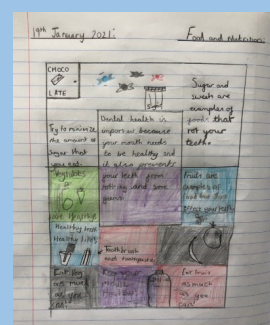 19th January 2021:
Food and Nutrition
CHOCO
LATE
Sugar
Sugar and
sweets are
examples of
foods that
rot your
teeth.
Try to minimize
the amount of
sugar that
you eat.
Dental health is
important because
your mouth needs
to be healthy and
it also prevents
your teeth from
rotting and some
gums.
Vegetables
Fruits are
examples of
food that don't
effect your teeth
Healthy teeth
Healthy life
Toothbrush
and toothpaste
Eat veg
as much
as you
can.
Keep your
mouth
Eat fruit
as much
as you
can